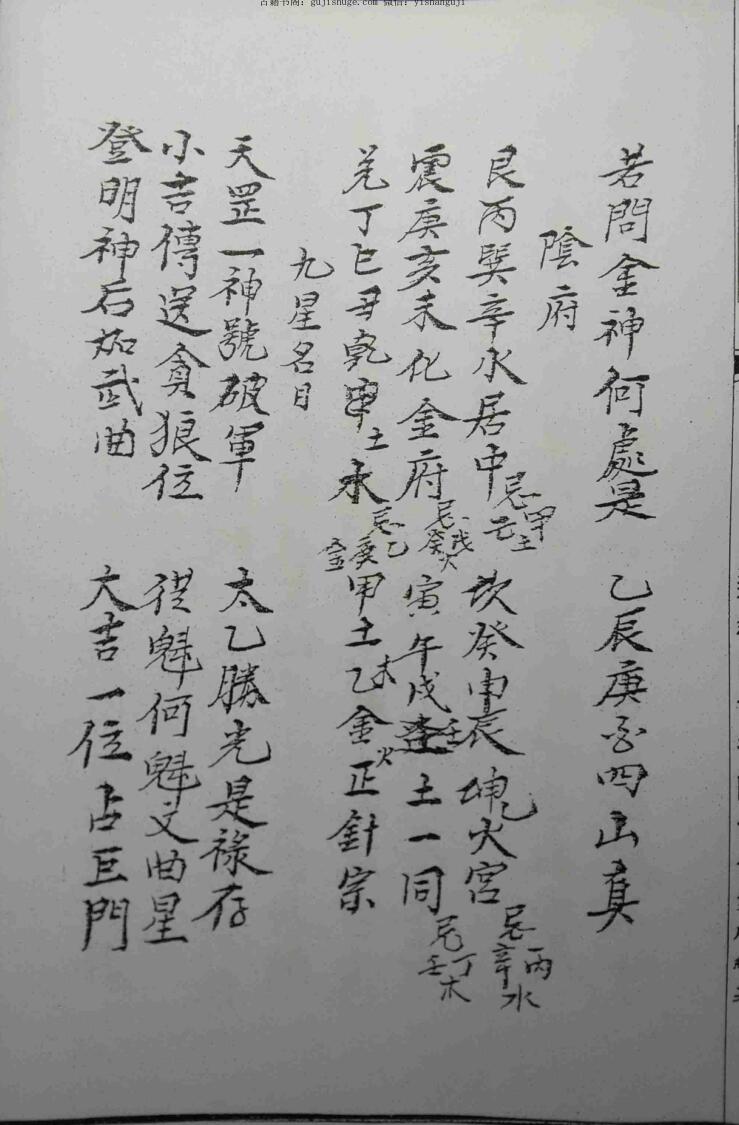 古籍书阁：gujishuge.com 微信：yishanguji
若問金神何處是 乙辰庚
四山真
陰府
艮丙巽辛水居中 忌甲己土 坎癸申辰坤乙火宮 忌丙辛水
震庚亥未化金府 忌戊癸火 寅午戌土一同 忌丁壬木
丁巳丑乾甲土 忌乙庚金 甲土乙金正針宗 木火
九星名目
天罡一神號破軍 太乙勝光是祿存
小吉傳送貪狼位 從魁何魁文曲星
登明神后如武曲 大吉一位占巨門